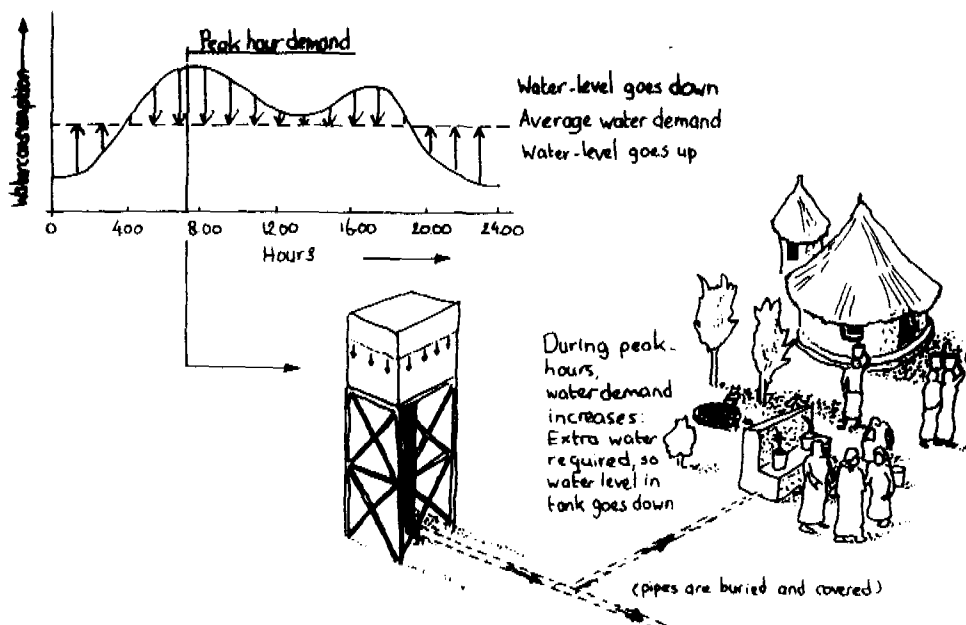 Peak hour demand
Waterconsumption
Water-level goes down
Average water demand
Water-level goes up
0 4.00 8.00 12.00 16.00 20.00 24.00
Hours
During peak-
hours,
water demand
increases:
Extra water
required, so
water level in
tank goes down
(pipes are buried and covered)